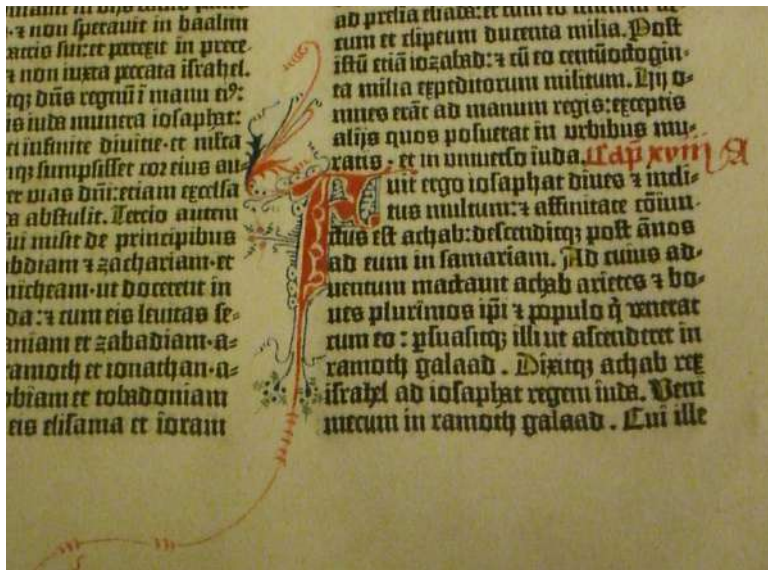 ⁊ non speravit in baalim
atris sui: et perrexit in prece-
⁊ non iuxta peccata israhel.
itq; dñs regnū ī manu ei⁹:
is iuda munera iosaphat:
ei infinite divitie·et mlta
mq; sumpsisset cor eius au-
er vias dñi: etiam excelsa
s abstulit. Tercio autem
ui misit de principibus
abdiam ⁊ zachariam·et
micheam·ut doceret in
da: ⁊ cum eis levitas se-
aniam et zabadiam·a-
ramoth et ionathan·a-
obiam et tobadoniam
eis elisama et ioram
ad prelia eliada: et cum eo
rum et clipeum ducenta milia. Post
istū etiā iozabad: ⁊ cū eo centū octogin-
ta milia expeditorum militum. Hij o-
mnes erāt ad manum regis: exceptis
alijs quos posuerat in urbibus mu-
ratis·et in universo iuda. Cap̄ xviii A
Fuit ergo iosaphat dives ⁊ incli-
tus multum: ⁊ affinitate cōiun-
ctus est achab: descenditq; post ānos
ad eum in samariam. Ad cuius ad-
ventum mactavit achab arietes ⁊ bo-
ves plurimos ip̄i ⁊ populo q̇ venerat
cum eo: p̱suasitq; illi ut ascenderet in
ramoth galaad. Dixitq; achab rex
israhel ad iosaphat regem iuda. Veni
mecum in ramoth galaad. Cui ille